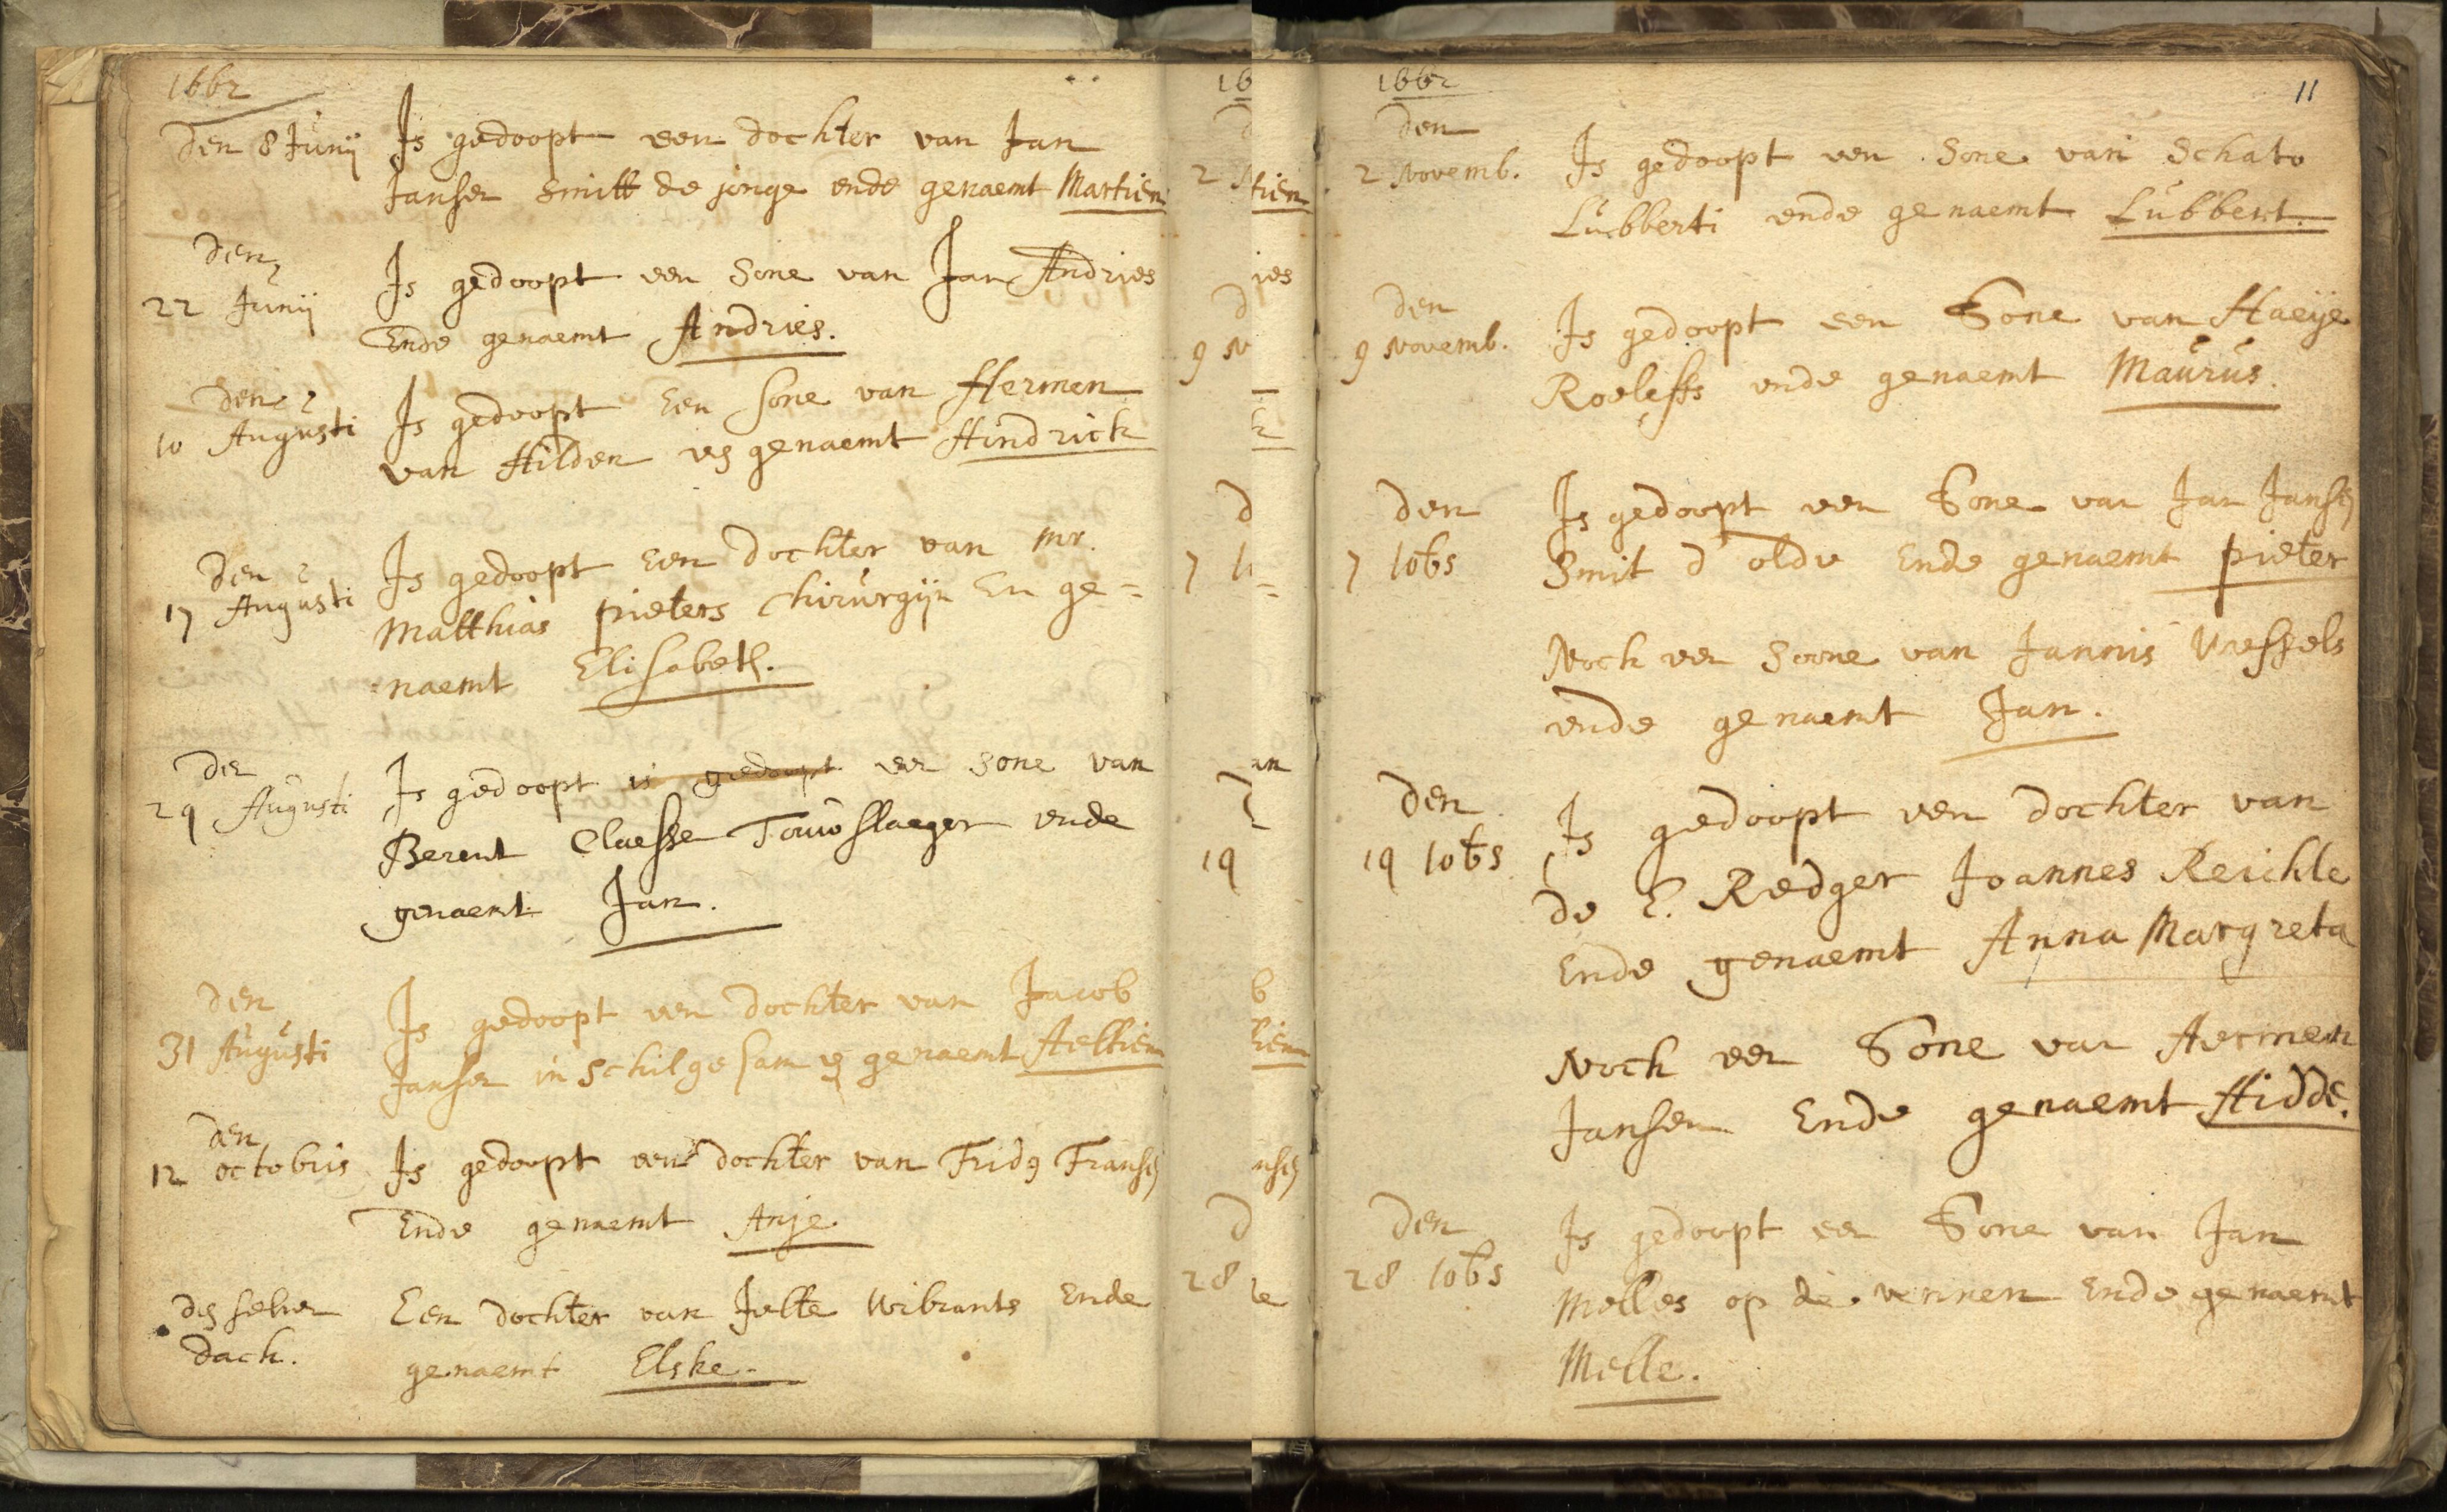 1662
den 8 Junij Is gedoopt een dochter van Jan
Jansen Smitt de jonge ende genaemt Martien
den
22 Junij Is gedoopt een Sone van Jan Andries
Ende genaemt Andries.
den
10 Augusti Is gedoopt Een Sone van Hermen
van Hilden es genaemt Hindrick
den
17 Augusti Is gedoopt Een dochter van Mr.
Matthias pieters Chirurgijn En ge=
naemt Elisabeth.
den
29 Augusti Is gedoopt is gedoopt een Sone van
Berent Claesse Touwslaeger ende
genaemt Jan.
den
31 Augusti Is gedoopt een dochter van Jacob
Jansen in Schilge sam es genaemt Aeltien
den
12 octobris Is gedoopt een dochter van Frid9 Transen
Ende genaemt Anje.
des selven Een dochter van Jelte Wibrants Ende
dach. genaemt Elske.
1662
11
den
2 Novemb. Is gedoopt een Sone van Schato
Lubberti ende genaemt Lubbert.
den
9 Novemb. Is gedoopt een Sone van Haeije
Roeleffs ende genaemt Maurus.
den Is gedoopt een Sone van Jan Jansen
7 10bs Smit d' olde Ende genaemt pieter
Noch een Soone van Jannis Wessels
ende genaemt Jan.
den
19 10bs Is gedoopt een dochter van
de E. Redger Joannes Reichle
Ende genaemt Anna Margreta
Noch een Sone van Hermen
Jansen Ende genaemt Hidde.
den Is gedoopt een Sone van Jan
28 10bs Melles op de vennen Ende genaemt
Melle.